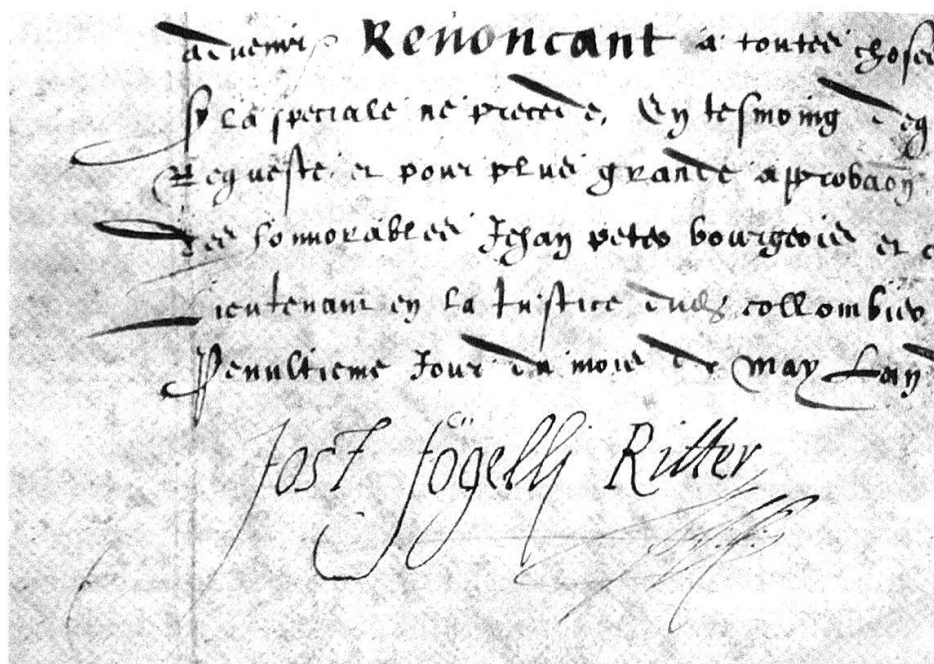 advenir Renoncant a toutes choses
sy la speciale ne precede, En tesmoing deq
Requeste et pour plus grande approbaon
des honnorables Jehan peter bourgeois et c
Lieutenant en la Justice dud collombier
Penultieme Jour du mois de May Lan
Jost fögelli Ritter